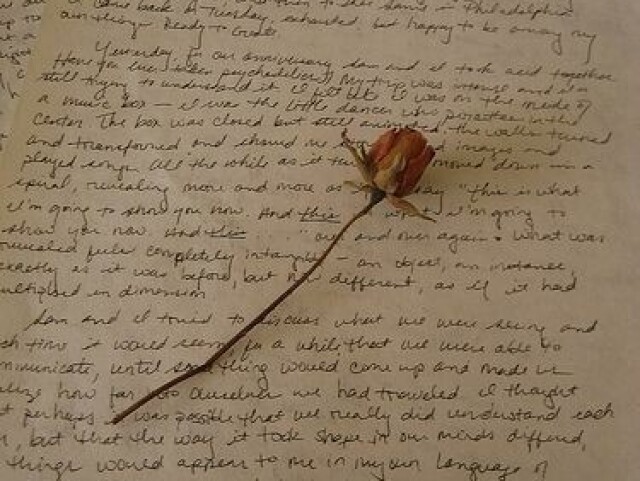 came back A Tuesday, exhausted, but happy to be among my
own things. Ready to Create
Yesterday, for our anniversary, Sam and I took acid together
Have you ever taken psychedelics? My trip was intense and I'm
still trying to understand it. I felt like I was on the inside of
a music box — I was the little dancer who pirouettes in the
center. The box was closed but still animated. The walls turned
and transformed and showed me images and
played songs. All the while as it moved down in a
spiral, revealing more and more as say "this is what
I'm going to show you now. And this is what I'm going to
show you now. And this is . . ." over and over again. What was
revealed felt completely intangible — an object, an instance,
exactly as it was before, but now different, as if it had
multiplied in dimension
Sam and I tried to discuss what we were seeing and
each time it would seem for a while that we were able to
communicate, until something would come up and made us
realize how far into ourselves we had traveled. I thought
that perhaps it was possible that we really did understand each
, but that the way it took shape in our minds differed,
things would appear to me in my own language of